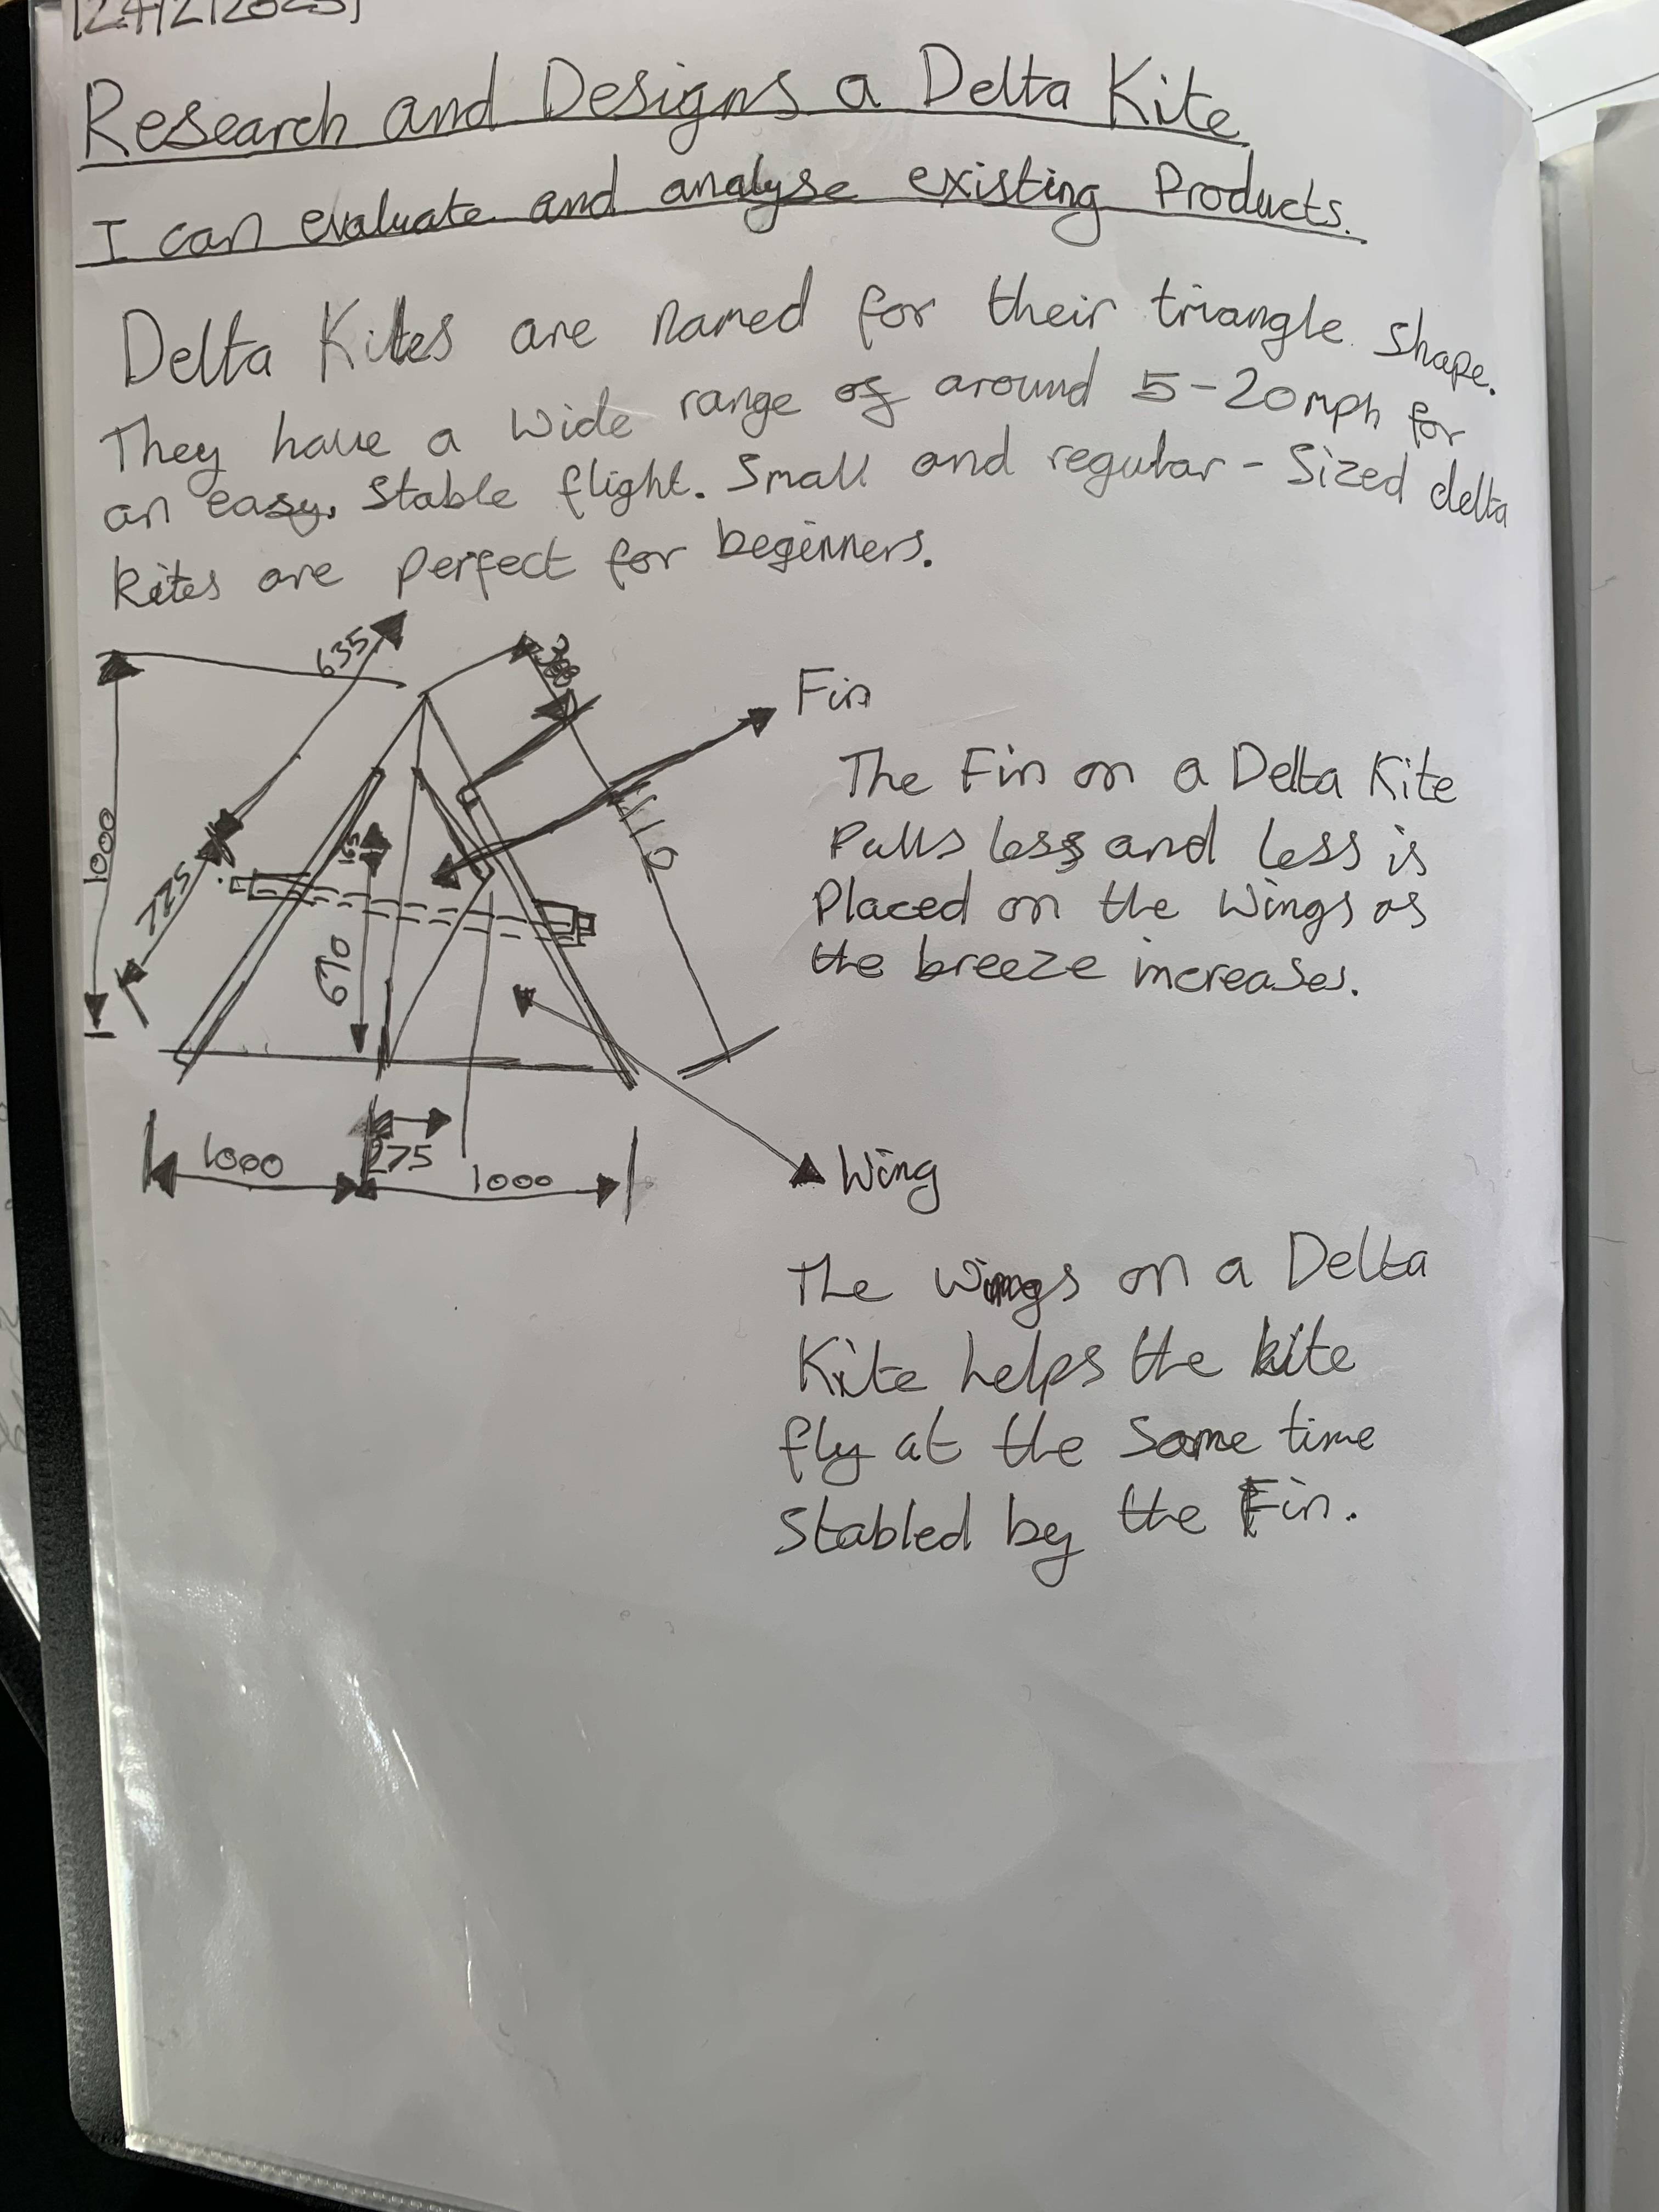 Research and Designs a Delta Kite
I can evaluate and analyse existing Products.
Delta Kites are named for their triangle shape.
They have a wide range of around 5-20mph for
an easy, stable flight. Small and regular-sized delta
kites are perfect for beginners.
635
Fin
1000
725
165
1110
670
The Fin on a Delta Kite
Pulls less and less is
Placed on the wings as
the breeze increases.
1000
275
1000
Wing
The Wings on a Delta
Kite helps the kite
fly at the same time
stabled by the Fin.